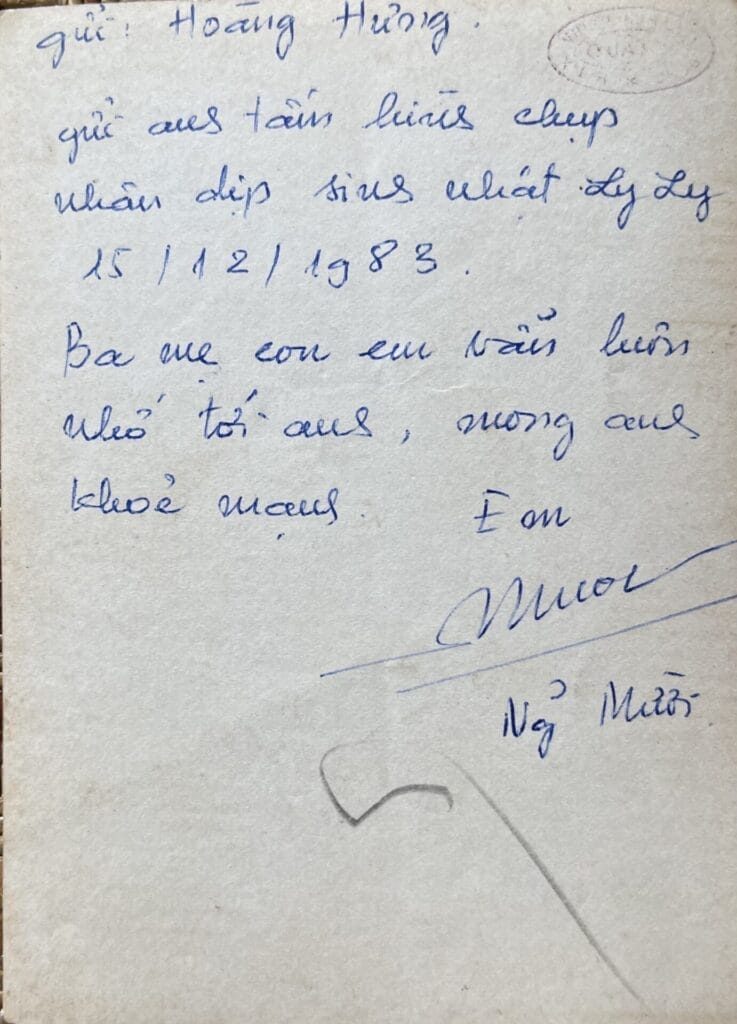 gửi: Hoàng Hưng.
gửi anh tấm hình chụp
nhân dịp sinh nhật Ly Ly
15/12/1983.
Ba mẹ con em vẫn luôn
nhớ tới anh, mong anh
khoẻ mạnh. Em
Mười